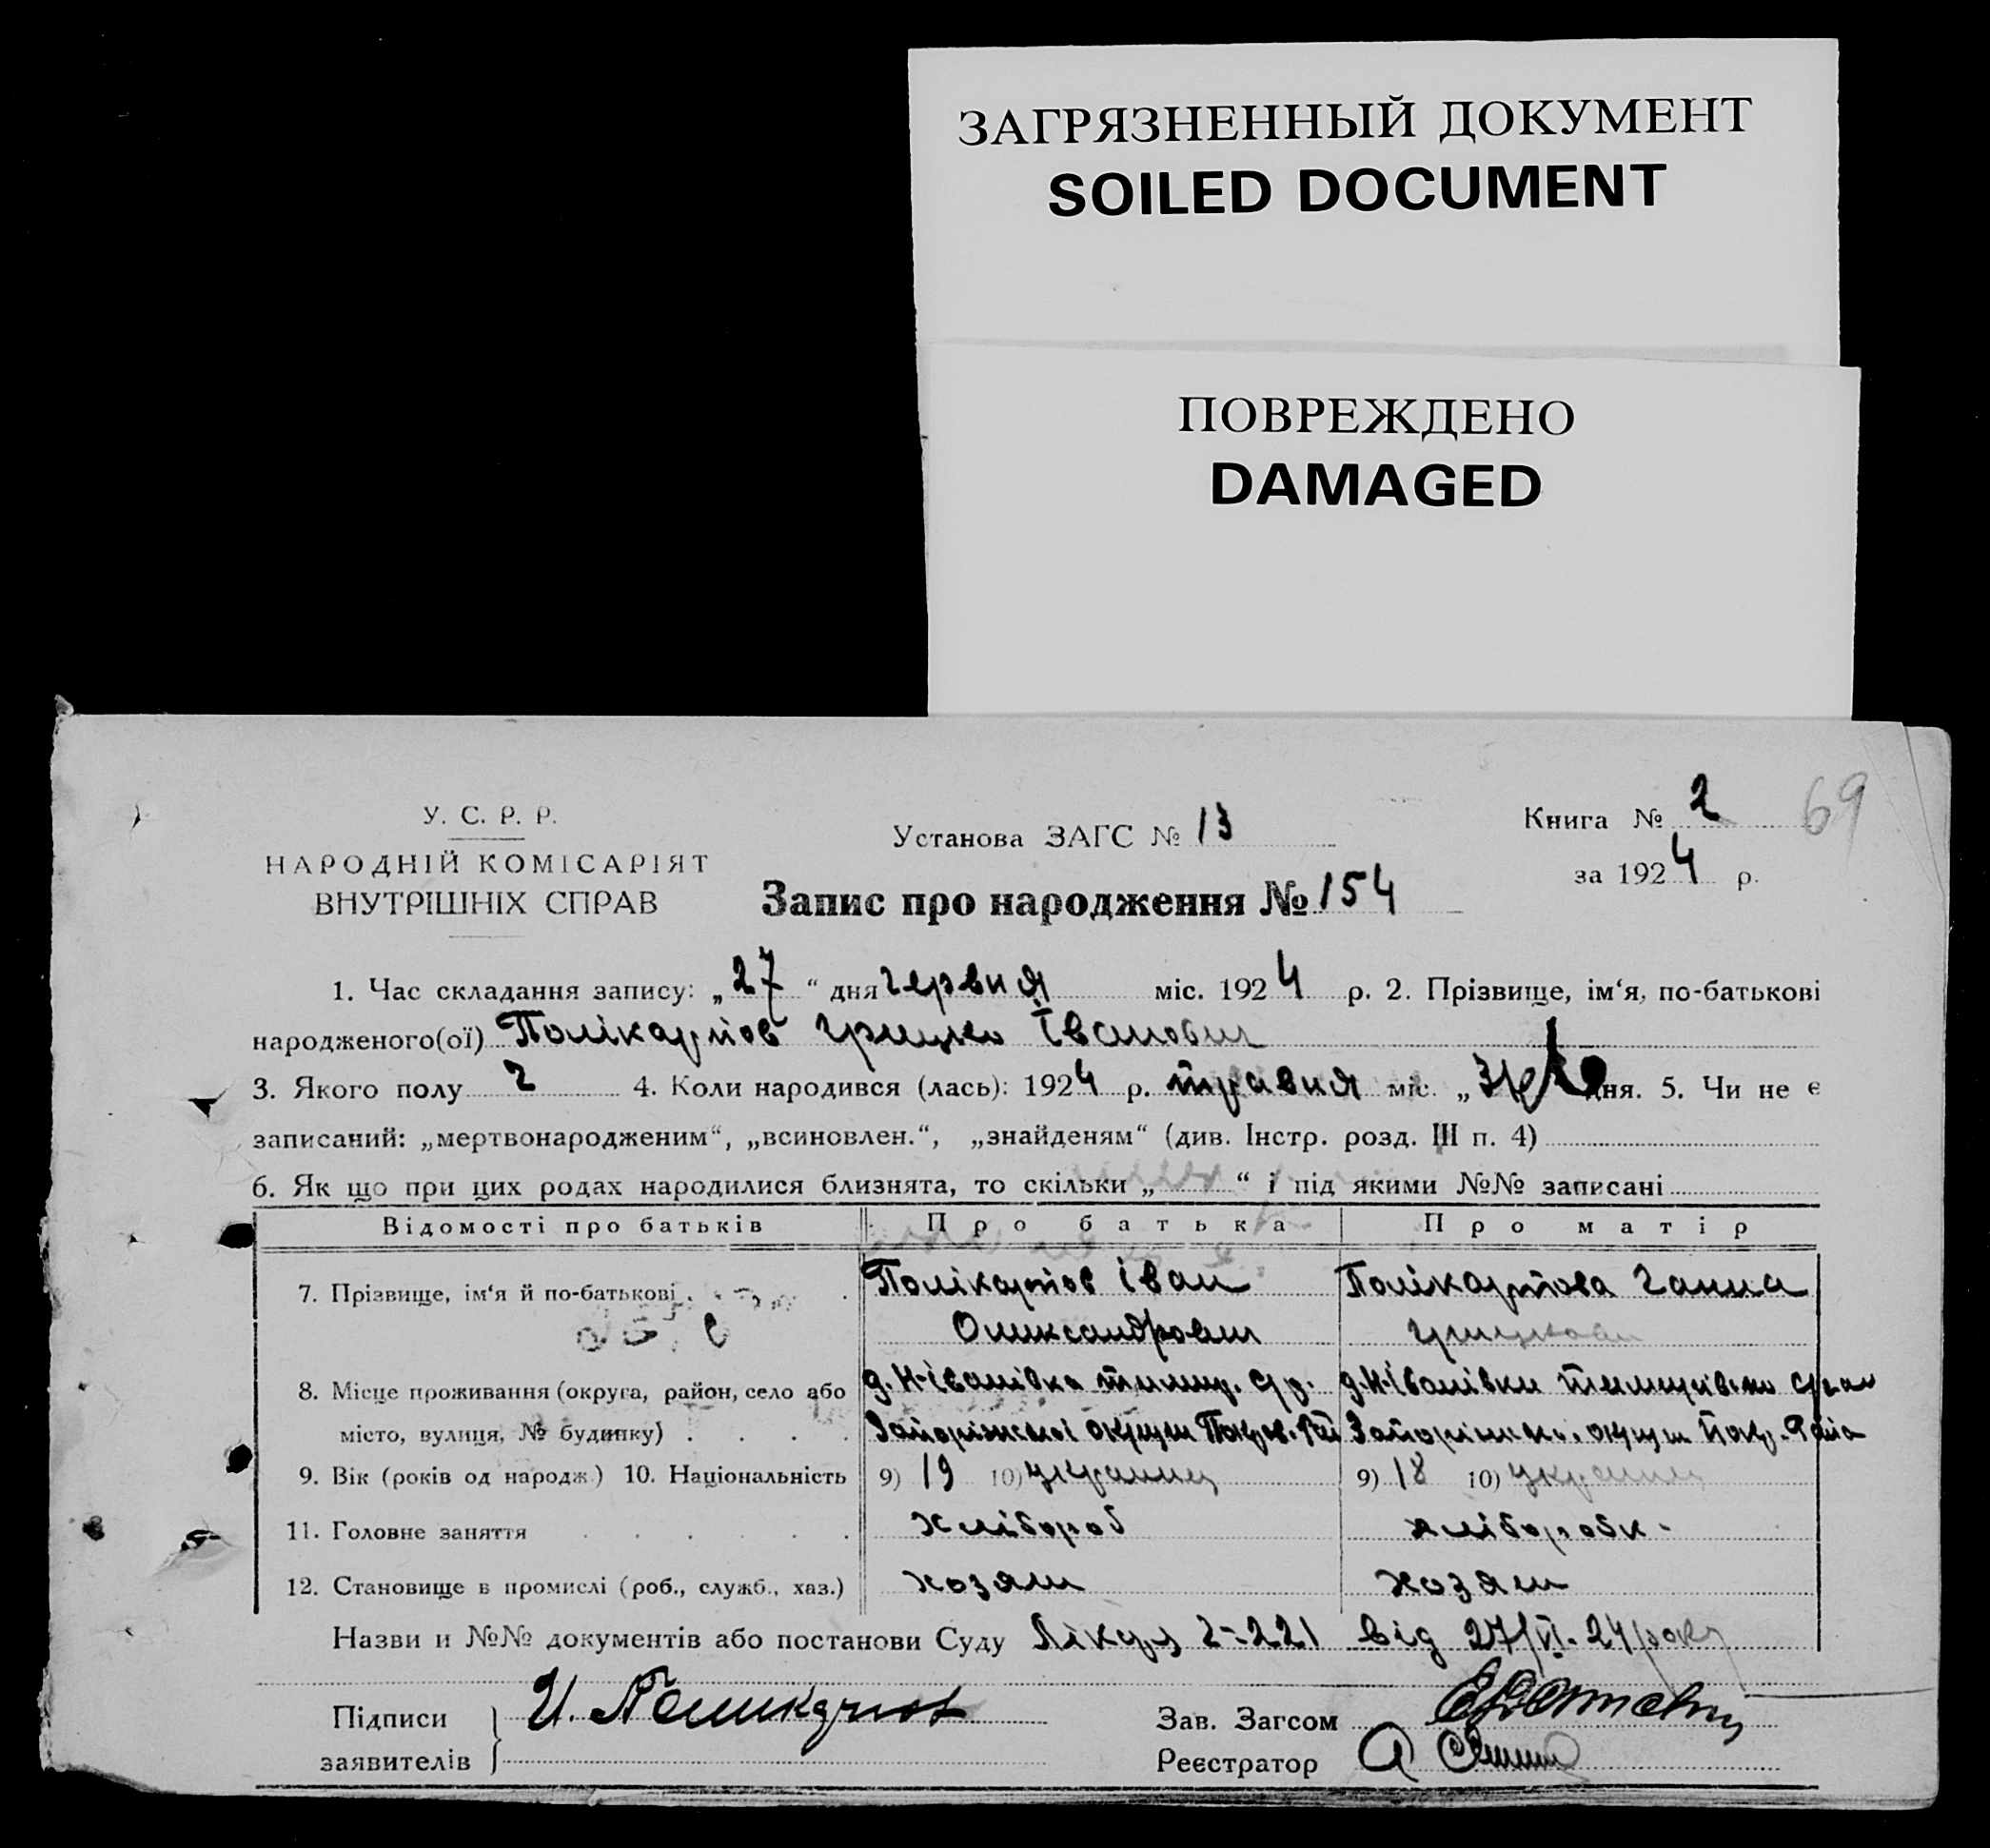 ЗАГРЯЗНЕННЫЙ ДОКУМЕНТ
SOILED DOCUMENT
ПОВРЕЖДЕНО
DAMAGED
69
У. С. Р. Р.
НАРОДНІЙ КОМІСАРІЯТ
ВНУТРІШНІХ СПРАВ
Установа ЗАГС № 13
Книга № 2
за 1924 р.
Запис про народження № 154
1. Час складання запису: „27“ дня червня міс. 1924 р. 2. Прізвище, ім‘я, по-батькові
народженого(ої) Полікарпов Грицько Іванович
3. Якого полу Ч 4. Коли народився (лась): 1924 р. травня міс. „ дня. 5. Чи не є
записаний: „мертвонародженим“, „всиновлен.“, „знайденям“ (див. Інстр. розд. III п. 4)
6. Як що при цих родах народилися близнята, то скільки „ “ і під якими №№ записані
Відомості про батьків Про батька Про матір
7. Прізвище, ім‘я й по-батькові Полікарпов Іван Полікарпова Ганна
Олександрович
8. Місце проживання (округа, район, село або д. Н-Іванівка д. Н-Іванівки
місто, вулиця, № будинку) Запоріжської округи Покров. Рай округи Покр. Райо
9. Вік (років од народж.) 10. Національність 9) 19 10) украинец 9) 18 10) украинец
11. Головне заняття хлібороб хліборобк
12. Становище в промислі (роб., служб., хаз.) хозяин хозяин
Назви и №№ документів або постанови Суду 2-221 від 27/VI-24 року
Підписи
заявителів
И. Поликарпов
Зав. Загсом
Реєстратор